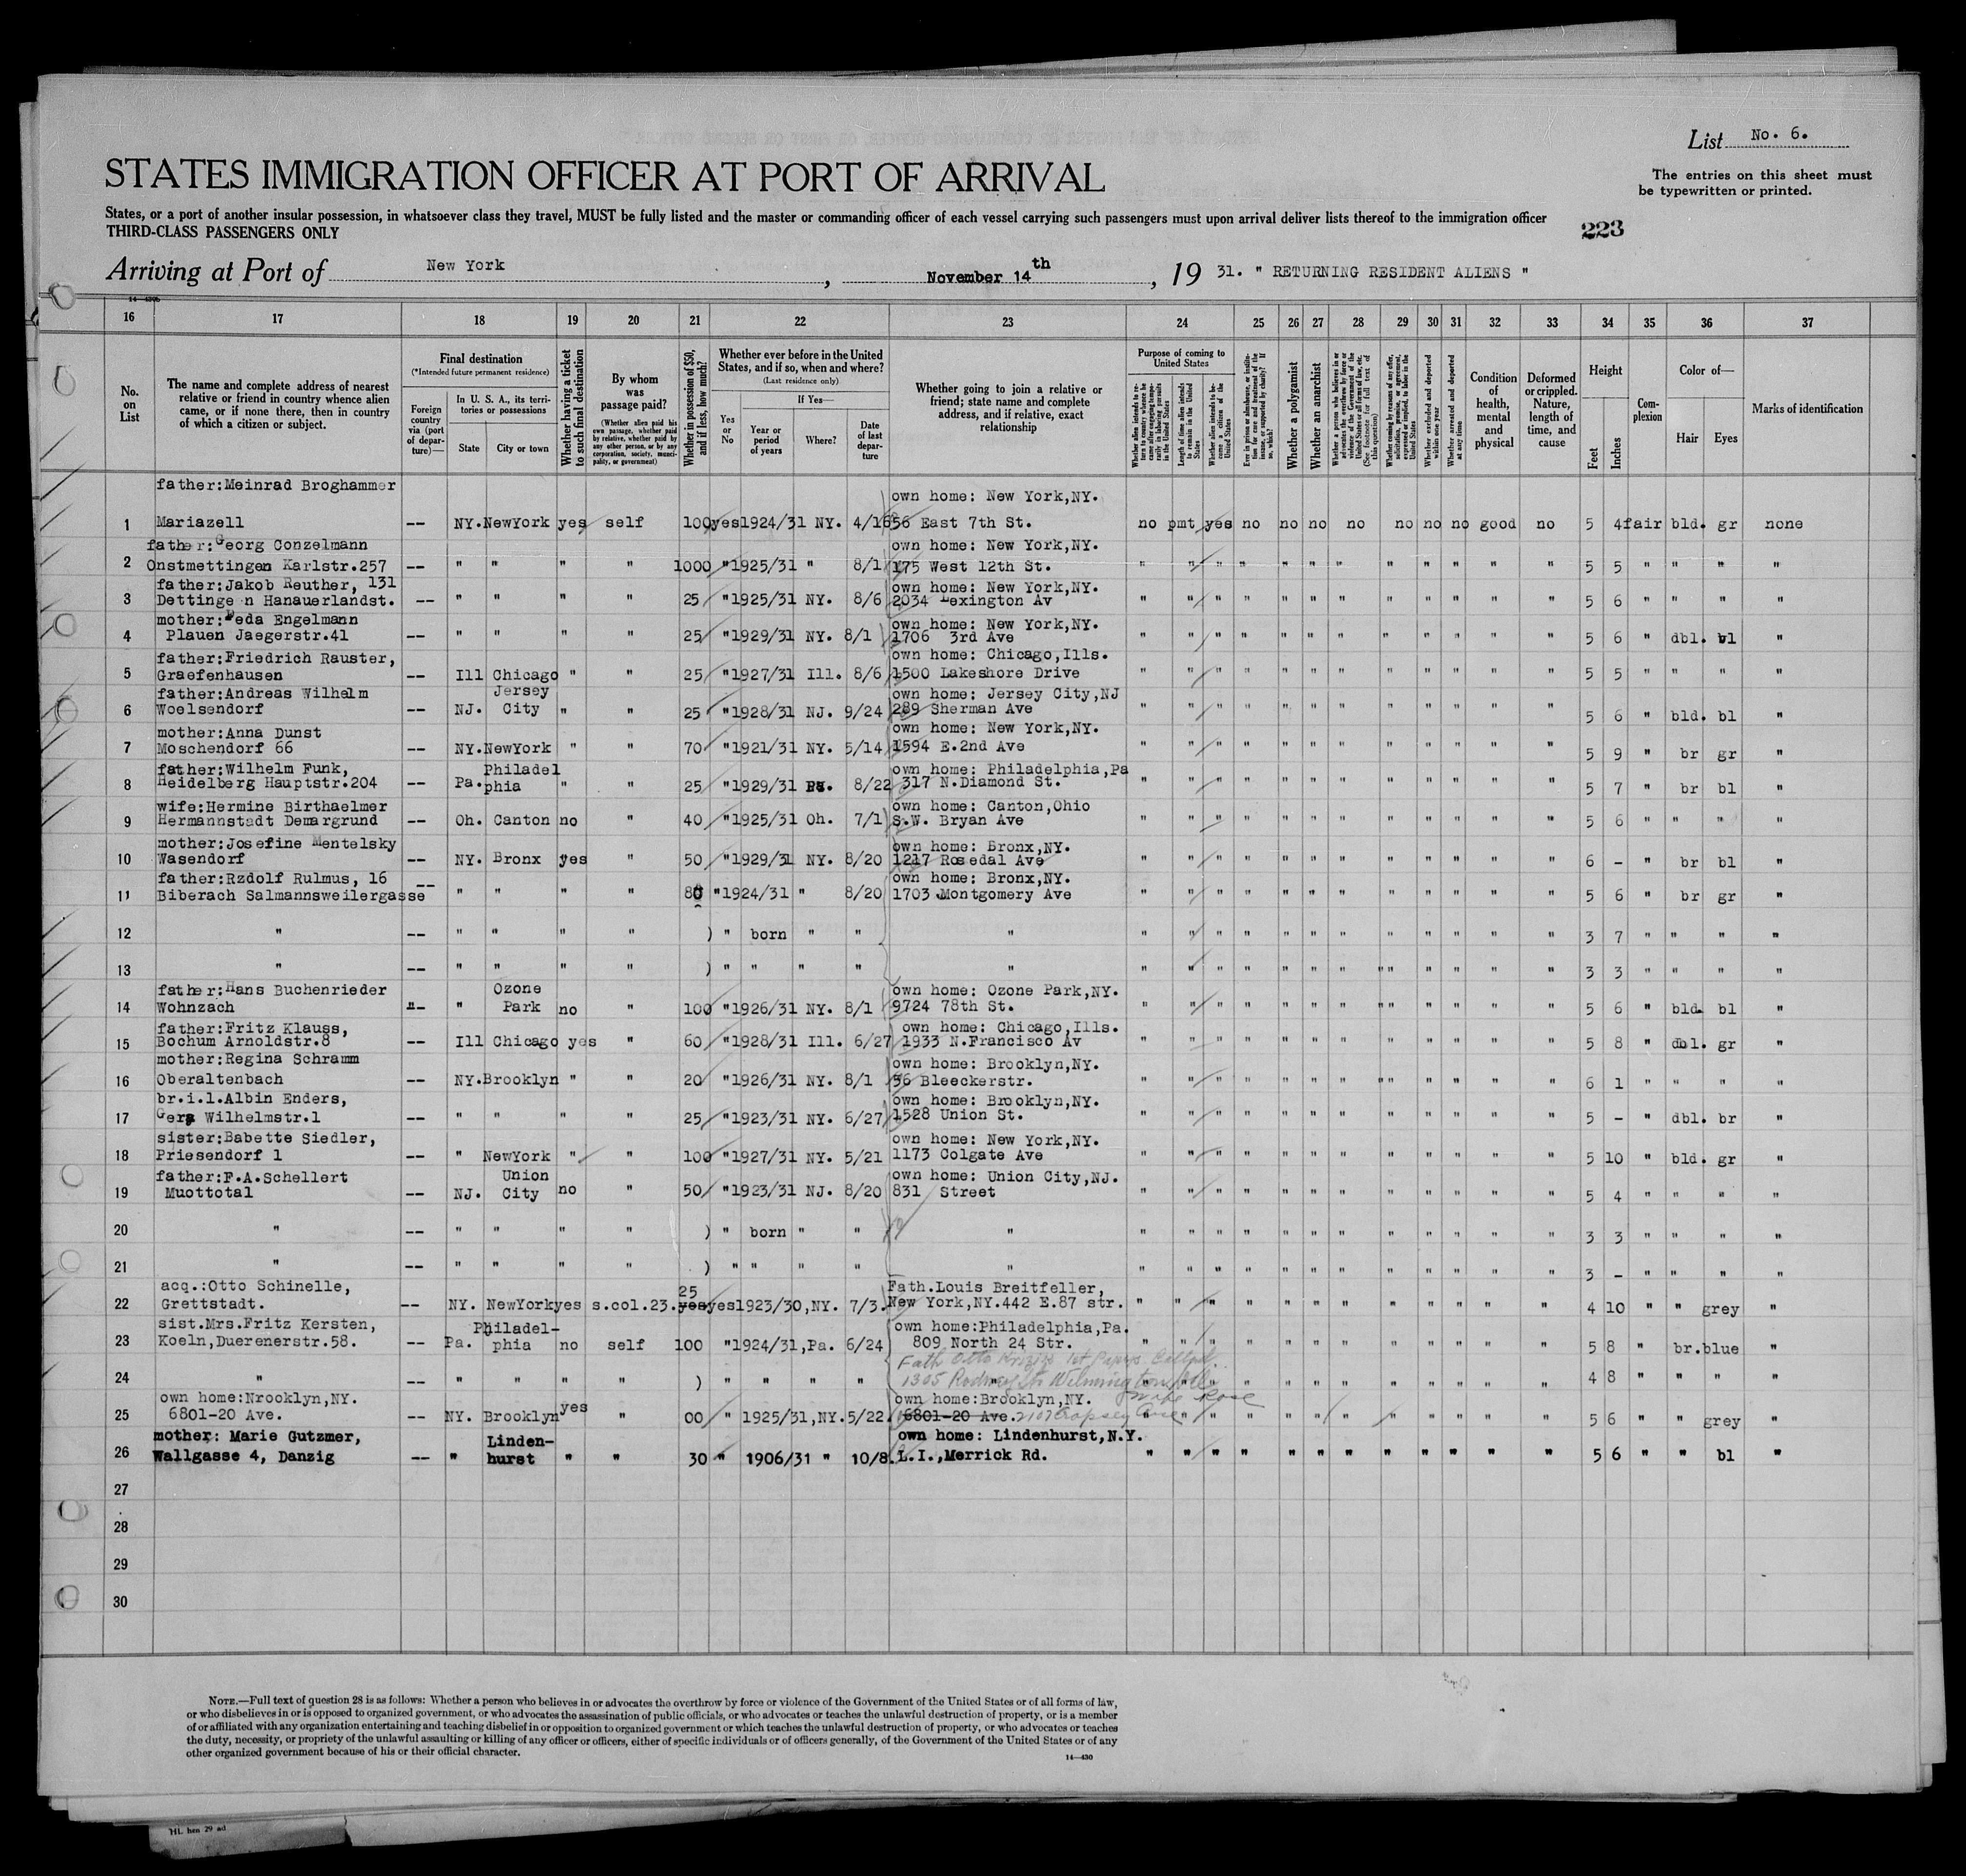 List No. 6.
STATES IMMIGRATION OFFICER AT PORT OF ARRIVAL
The entries on this sheet must
be typewritten or printed.
States, or a port of another insular possession, in whatsoever class they travel, MUST be fully listed and the master or commanding officer of each vessel carrying such passengers must upon arrival deliver lists thereof to the immigration officer
THIRD-CLASS PASSENGERS ONLY
223
Arriving at Port of New York, November 14th, 19 31. " RETURNING RESIDENT ALIENS "
16 17 18 19 20 21 22 23 24 25 26 27 28 29 30 31 32 33 34 35 36 37
No. on List
The name and complete address of nearest relative or friend in country whence alien came, or if none there, then in country of which a citizen or subject.
Final destination
(*Intended future permanent residence)
Foreign country via (port of departure)—
In U. S. A., its territories or possessions
State City or town
Whether having a ticket to such final destination
By whom was passage paid?
(Whether alien paid his own passage, whether paid by relative, whether paid by any other person, or by any corporation, society, municipality, or government)
Whether in possession of $50, and if less, how much?
Whether ever before in the United States, and if so, when and where?
(Last residence only)
Yes or No
If Yes—
Year or period of years Where?
Date of last departure
Whether going to join a relative or friend; state name and complete address, and if relative, exact relationship
Purpose of coming to United States
Whether a polygamist
Whether an anarchist
Condition of health, mental and physical
Deformed or crippled. Nature, length of time, and cause
Height
Feet Inches
Complexion
Color of—
Hair Eyes
Marks of identification
father:Meinrad Broghammer own home: New York,NY.
1 Mariazell -- NY. NewYork yes self 100 yes 1924/31 NY. 4/16 56 East 7th St. no pmt yes no no no no no no no good no 5 4 fair bld. gr none
father:Georg Conzelmann own home: New York,NY.
2 Onstmettingen Karlstr.257 -- " " " " 1000 " 1925/31 " 8/1 175 West 12th St. " " " " " " " " " " " " 5 5 " " " "
father:Jakob Reuther, 131 own home: New York,NY.
3 Dettingen Hanauerlandst. -- " " " " 25 " 1925/31 NY. 8/6 2034 Lexington Av " " " " " " " " " " " " 5 6 " " " "
mother: eda Engelmann own home: New York,NY.
4 Plauen Jaegerstr.41 -- " " " " 25 " 1929/31 NY. 8/1 1706 3rd Ave " " " " " " " " " " " " 5 6 " dbl. bl "
father:Friedrich Rauster, own home: Chicago,Ills.
5 Graefenhausen -- Ill Chicago " " 25 " 1927/31 Ill. 8/6 1500 Lakeshore Drive " " " " " " " " " " " " 5 5 " " " "
father:Andreas Wilhelm Jersey own home: Jersey City,NJ
6 Woelsendorf -- NJ. City " " 25 " 1928/31 NJ. 9/24 289 Sherman Ave " " " " " " " " " " " " 5 6 " bld. bl "
mother:Anna Dunst own home: New York,NY.
7 Moschendorf 66 -- NY. NewYork " " 70 " 1921/31 NY. 5/14 1594 E.2nd Ave " " " " " " " " " " " " 5 9 " br gr "
father:Wilhelm Funk, Philadel own home: Philadelphia,Pa
8 Heidelberg Hauptstr.204 -- Pa. phia " " 25 " 1929/31 Pa. 8/22 317 N.Diamond St. " " " " " " " " " " " " 5 7 " br bl "
wife:Hermine Birthaelmer own home: Canton,Ohio
9 Hermannstadt Demargrund -- Oh. Canton no " 40 " 1925/31 Oh. 7/1 S.W. Bryan Ave " " " " " " " " " " " " 5 6 " " " "
mother:Josefine Mentelsky own home: Bronx,NY.
10 Wasendorf -- NY. Bronx yes " 50 " 1929/31 NY. 8/20 1217 Rosedal Ave " " " " " " " " " " " " 6 - " br bl "
father:Rzdolf Rulmus, 16 own home: Bronx,NY.
11 Biberach Salmannsweilergasse -- " " " " 80 " 1924/31 " 8/20 1703 Montgomery Ave " " " " " " " " " " " " 5 6 " br gr "
12 " -- " " " " ) " born " " " " " " " " " " " " " " " " 3 7 " " " "
13 " -- " " " " ) " " " " " " " " " " " " " " " " " " 3 3 " " " "
father:Hans Buchenrieder Ozone own home: Ozone Park,NY.
14 Wohnzach -- " Park no " 100 " 1926/31 NY. 8/1 9724 78th St. " " " " " " " " " " " " 5 6 " bld. bl "
father:Fritz Klauss, own home: Chicago,Ills.
15 Bochum Arnoldstr.8 -- Ill Chicago yes " 60 " 1928/31 Ill. 6/27 1933 N.Francisco Av " " " " " " " " " " " " 5 8 " dbl. gr "
mother:Regina Schramm own home: Brooklyn,NY.
16 Oberaltenbach -- NY. Brooklyn " " 20 " 1926/31 NY. 8/1 36 Bleeckerstr. " " " " " " " " " " " " 6 1 " " " "
br.i.l.Albin Enders, own home: Brooklyn,NY.
17 Gera Wilhelmstr.1 -- " " " " 25 " 1923/31 NY. 6/27 1528 Union St. " " " " " " " " " " " " 5 - " dbl. br "
sister:Babette Siedler, own home: New York,NY.
18 Priesendorf 1 -- " NewYork " " 100 " 1927/31 NY. 5/21 1173 Colgate Ave " " " " " " " " " " " " 5 10 " bld. gr "
father:F.A.Schellert Union own home: Union City,NJ.
19 Muottotal -- NJ. City no " 50 " 1923/31 NJ. 8/20 831 Street " " " " " " " " " " " " 5 4 " " " "
20 " -- " " " " ) " born " " " " " " " " " " " " " " " " 3 3 " " " "
21 " -- " " " " ) " " " " " " " " " " " " " " " " " " 3 - " " " "
acq.:Otto Schinelle, 25 Fath.Louis Breitfeller,
22 Grettstadt. -- NY. NewYork yes s.col.23. yes yes 1923/30,NY. 7/3. New York,NY.442 E.87 str. " " " " " " " " " " " " 4 10 " " grey "
sist.Mrs.Fritz Kersten, Philadel- own home:Philadelphia,Pa.
23 Koeln,Duerenerstr.58. -- Pa. phia no self 100 " 1924/31,Pa. 6/24 809 North 24 Str. " " " " " " " " " " " " 5 8 " br. blue "
Fath Otto 1st Papers
1305 Rodney St Wilmington Del
24 " -- " " " " ) " " " " " " " " " " " " " " " " " 4 8 " " " "
own home:Nrooklyn,NY. yes own home:Brooklyn,NY. Wife Rose
25 6801-20 Ave. -- NY. Brooklyn " 00 " 1925/31,NY. 5/22. 6801-20 Ave. 2107 Cropsey Ave " " " " " " " " " " " " 5 6 " " grey "
mother: Marie Gutzmer, Linden- own home: Lindenhurst,N.Y.
26 Wallgasse 4, Danzig -- " hurst " " 30 " 1906/31 " 10/8. L.I.,Merrick Rd. " " " " " " " " " " " " 5 6 " " bl "
27
28
29
30
NOTE.—Full text of question 28 is as follows: Whether a person who believes in or advocates the overthrow by force or violence of the Government of the United States or of all forms of law,
or who disbelieves in or is opposed to organized government, or who advocates the assassination of public officials, or who advocates or teaches the unlawful destruction of property, or is a member
of or affiliated with any organization entertaining and teaching disbelief in or opposition to organized government or which teaches the unlawful destruction of property, or who advocates or teaches
the duty, necessity, or propriety of the unlawful assaulting or killing of any officer or officers, either of specific individuals or of officers generally, of the Government of the United States or of any
other organized government because of his or their official character.
14—430